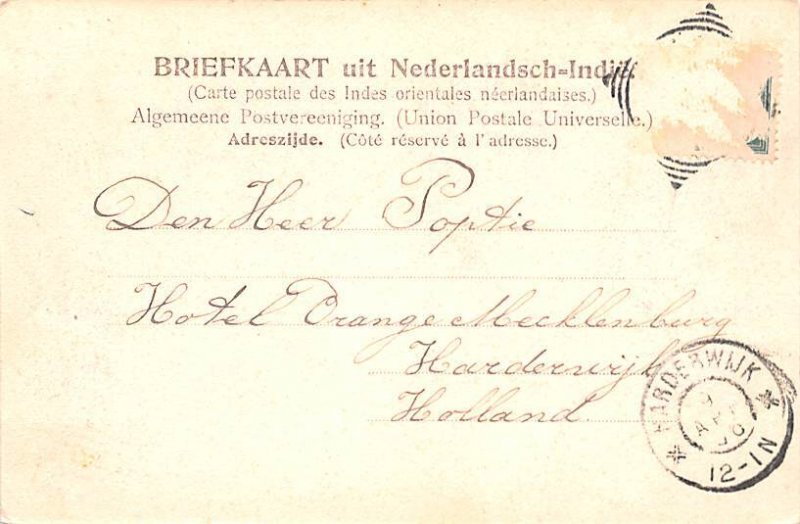 BRIEFKAART uit Nederlandsch-Indië.
(Carte postale des Indes orientales néerlandaises.)
Algemeene Postvereeniging. (Union Postale Universelle.)
Adreszijde. (Côté réservé à l'adresse.)
Den Heer Poptie
Hotel Orange Mecklenburg
Harderwijk
Holland.
HARDERWIJK
9
12-1N